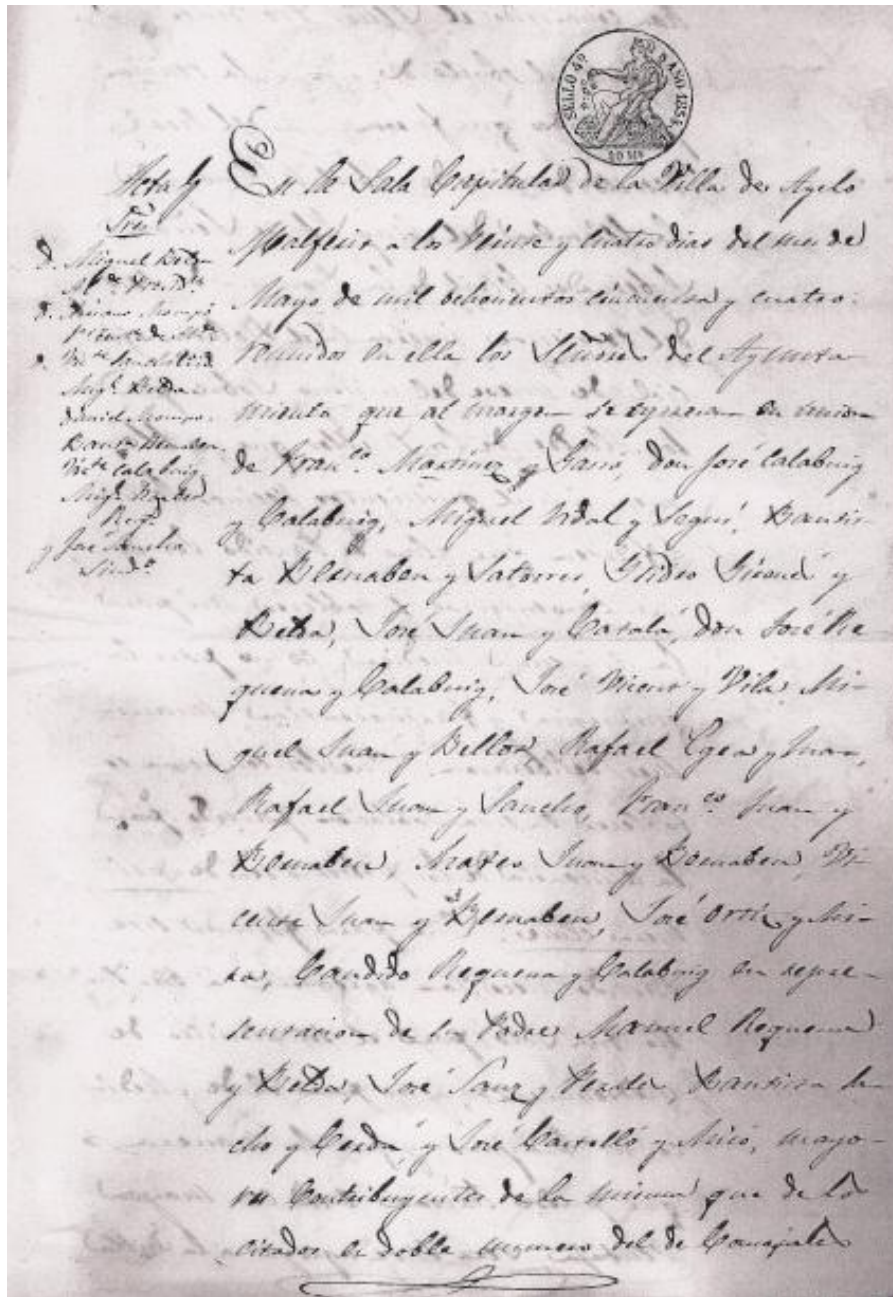 SELLO 4º AÑO 1854
40 Ms
Acta
Sres
D. Miguel Belda
D. Mompó
Migl. Belda
Daniel Mompó
Bauta
Victe Calabuig
y José Sancho
Sindo.
En la Sala Capitular de la Villa de Ayelo
Malferit a los Veinte y cuatro dias del mes de
Mayo de mil ochocientos cincuenta y cuatro:
reunidos en ella los Señores del Ayunta-
miento que al margen se expresan en union
de Franco. Martinez y Sanz, don José Calabuig
y Calabuig, Miguel Vidal y Seguí, Bautis-
ta Benaben y Satorres, Gironés y
Belda, José Juan y Catalá, don José Re
quena y Calabuig, José Vicent y Vila, Mi-
guel Juan y Bellot, Rafael Egea y Juan,
Rafael Juan y Sancho, Franco. Juan y
Bernaben, Mateo Juan y Bernaben, Vi-
cente Juan y Bernaben, José Ortiz y Mi-
ra, Candido Requena y Calabuig en repre-
sentacion de su Padre Manuel Requena
y Belda, José Sanz y Bautista
y Cerdá y José Castelló y Micó, mayo-
res Contribuyentes de la misma que de lo
citados es doble numero del de Concejales